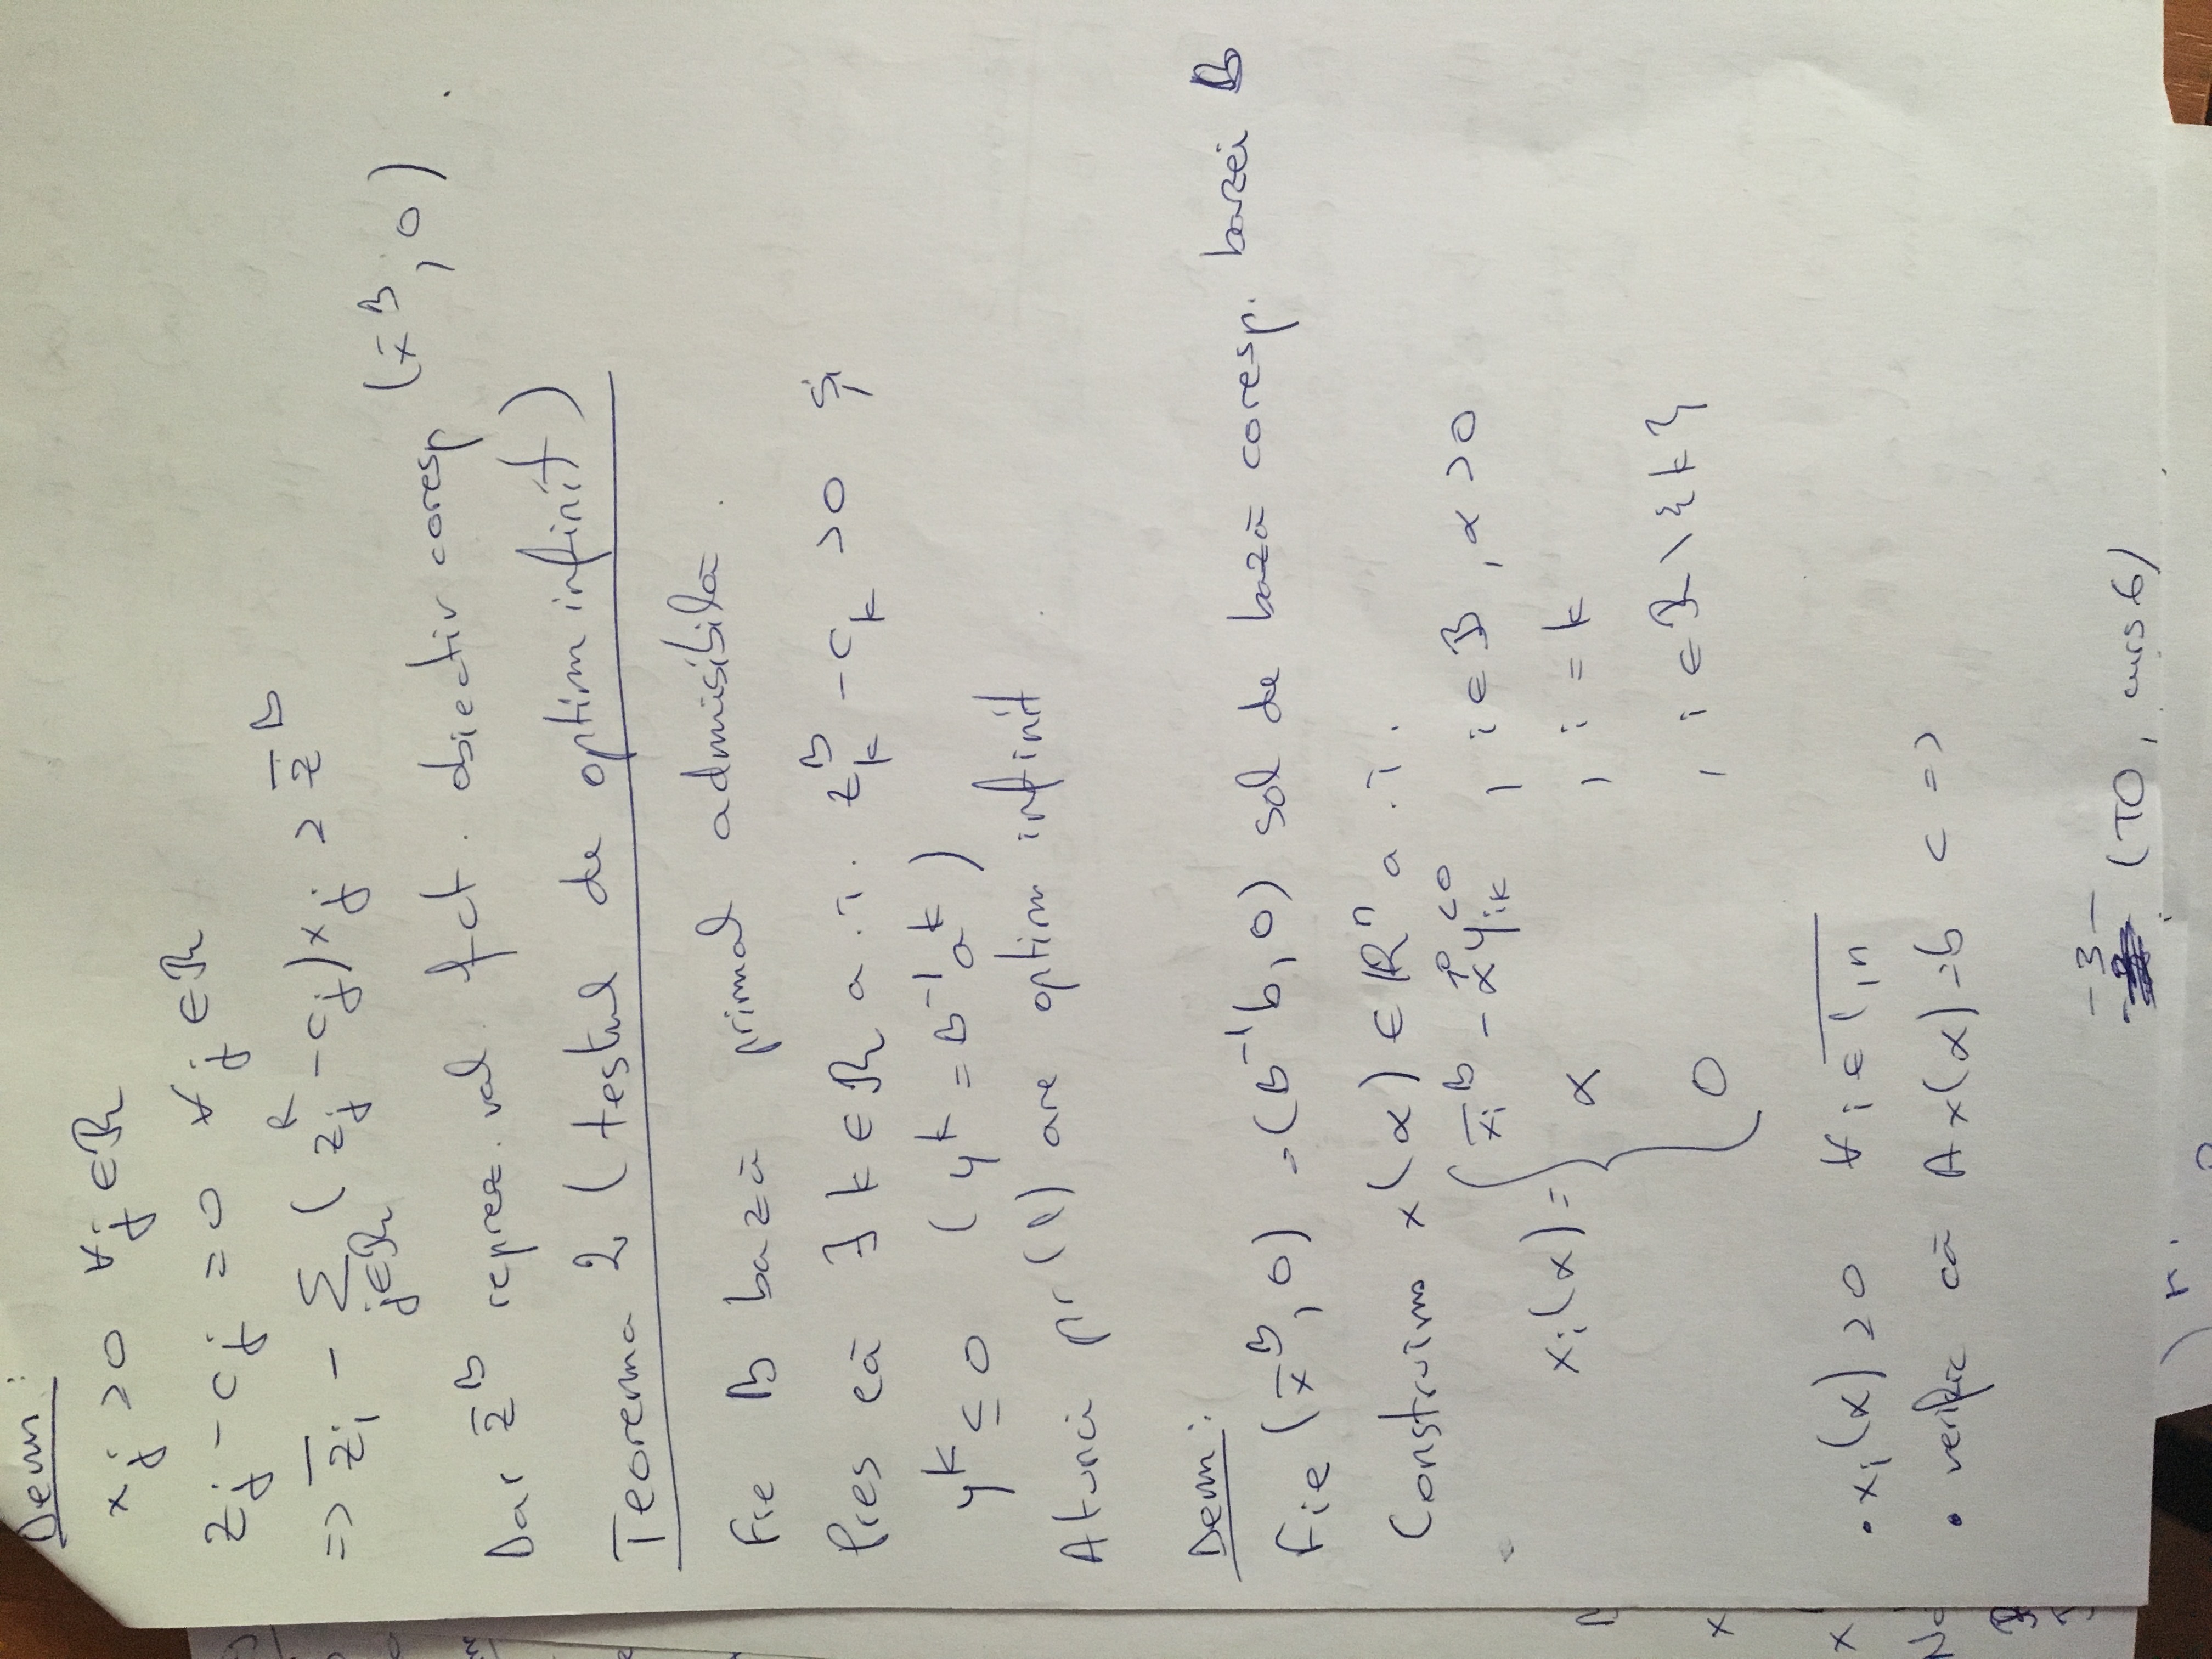 Dem:
x_j ≥ 0 ∀ j ∈ R
z_j - c_j = 0 ∀ j ∈ R
=> z̄_1 - Σ_{j∈R} (z_j^R - c_j) x_j ≥ z̄^B
Dar z̄^B reprez. val fct. obiectiv coresp (x̄^B, 0).
Teorema 2 (testul de optim infinit)
Fie B bază primal admisibilă.
Pres că ∃ k ∈ R a.î. z_k^B - c_k > 0 și
y^k ≤ 0 (y^k = B^{-1} a^k)
Atunci pr (1) are optim infinit.
Dem:
Fie (x̄^B, 0) = (B^{-1}b, 0) sol de bază coresp. bazei B
Construim x(α) ∈ R^n a.î.
x_i(α) = { x̄_i^B - α y_ik , i ∈ B, α > 0
α , i = k
0 , i ∈ R \ {k}
• x_i(α) ≥ 0 ∀ i ∈ 1,n
• verific că A x(α) = b <=>
-3- (TO, curs 6)